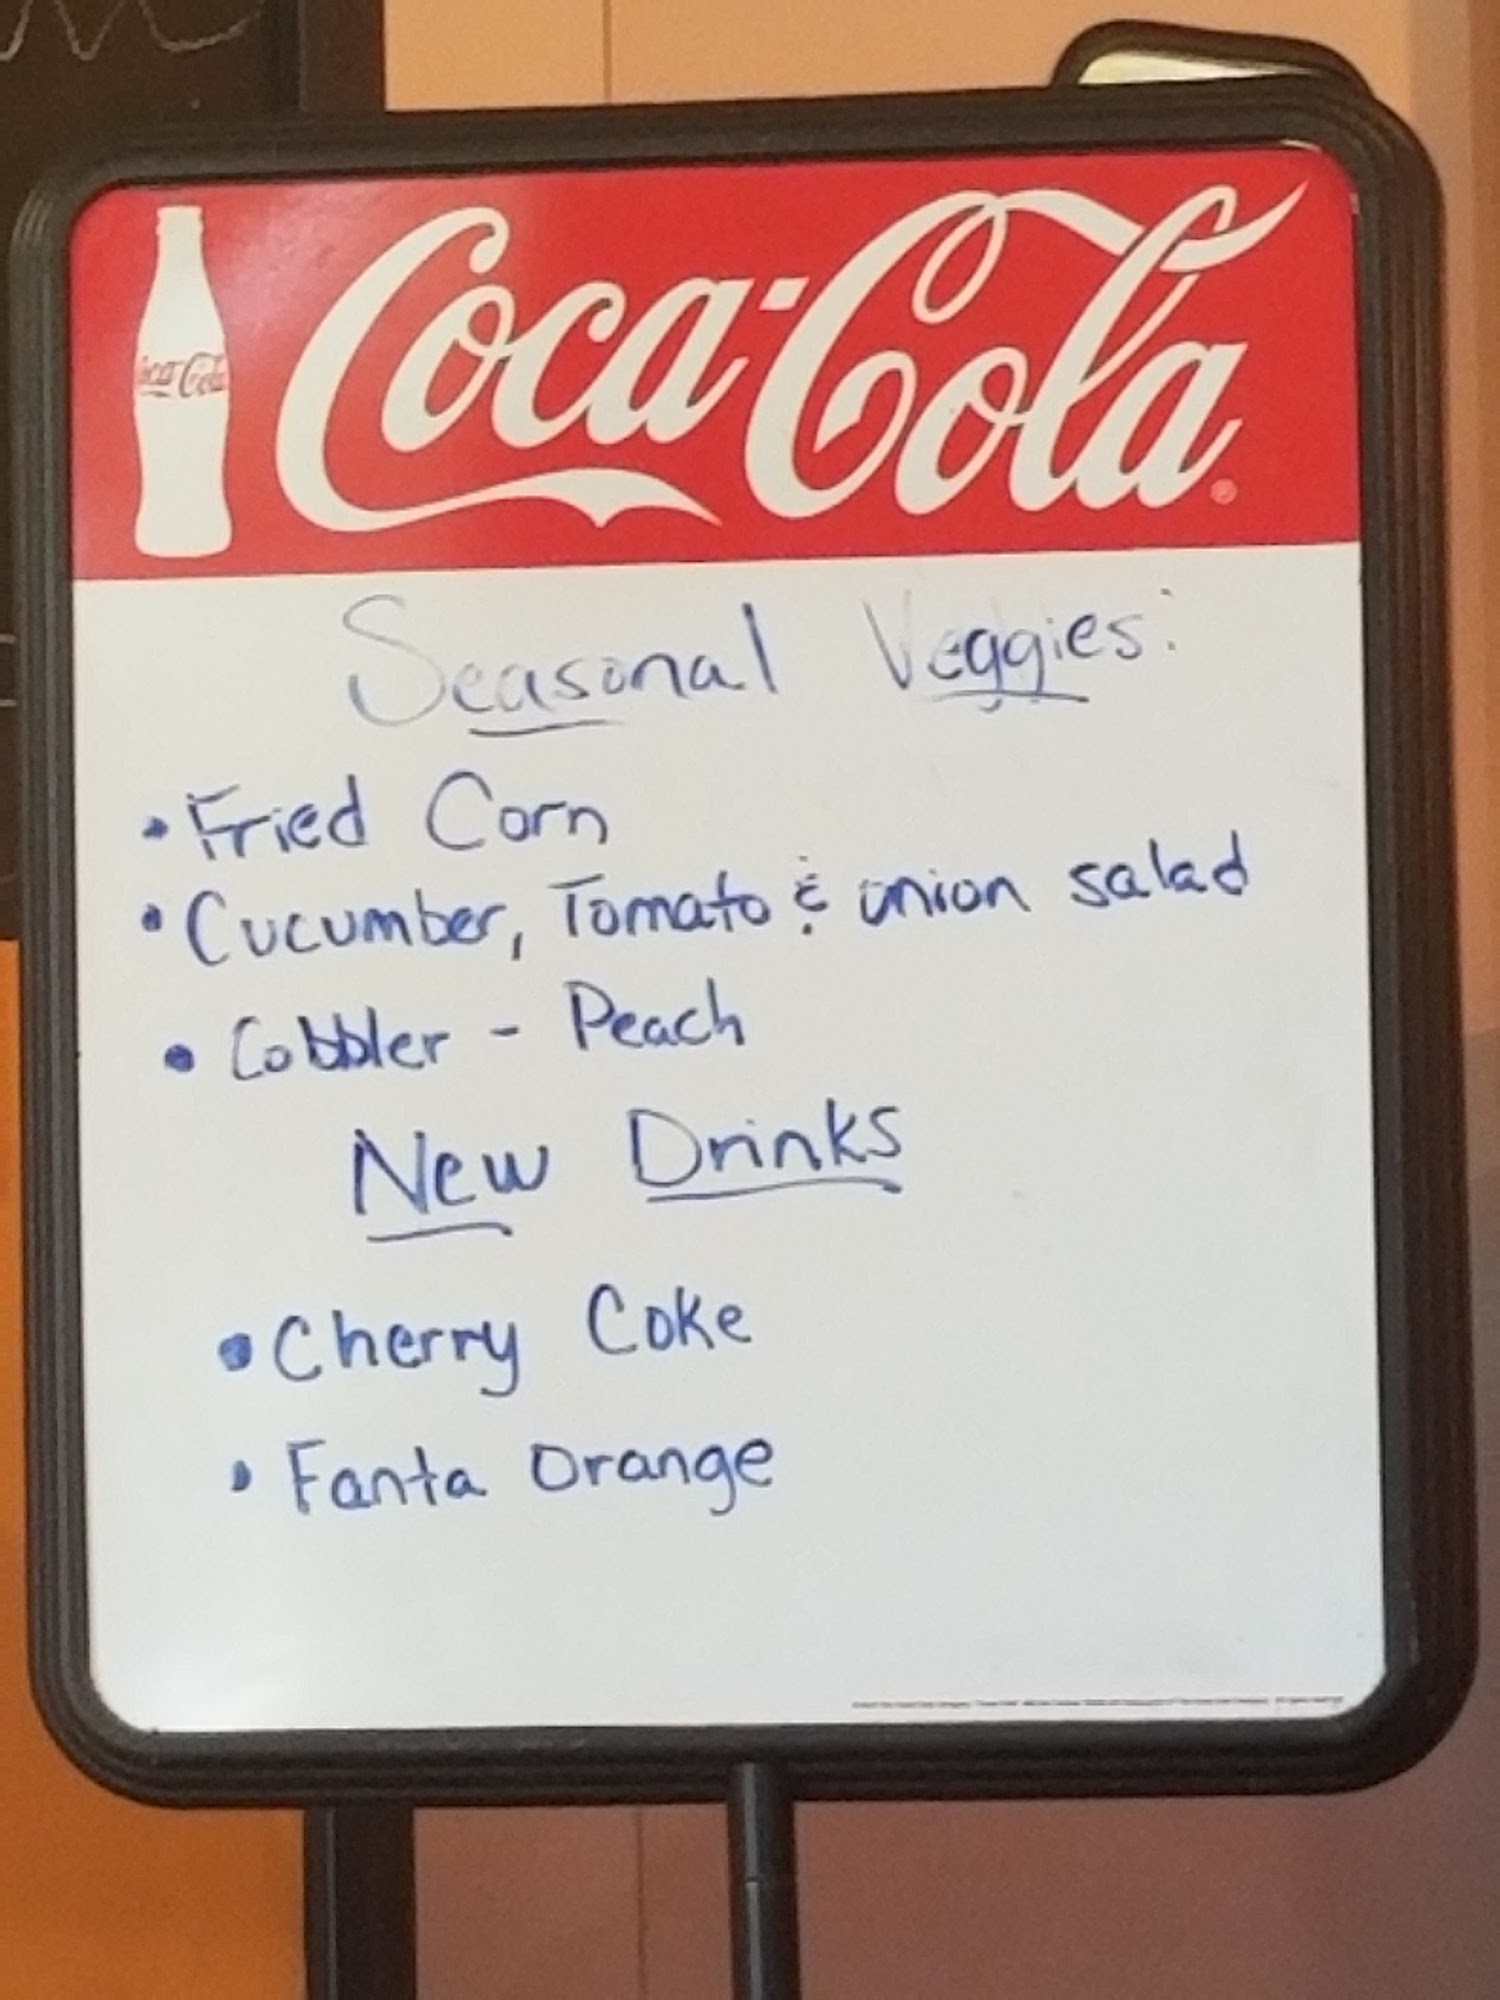 Coca-Cola
Coca-Cola
Seasonal Veggies:
• Fried Corn
• Cucumber, Tomato & onion salad
• Cobbler - Peach
New Drinks
• Cherry Coke
• Fanta Orange